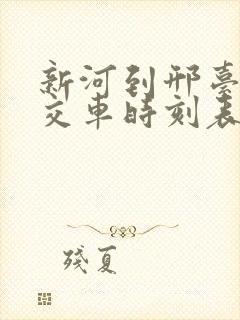 新河到邢臺
交車時刻表
殘夏